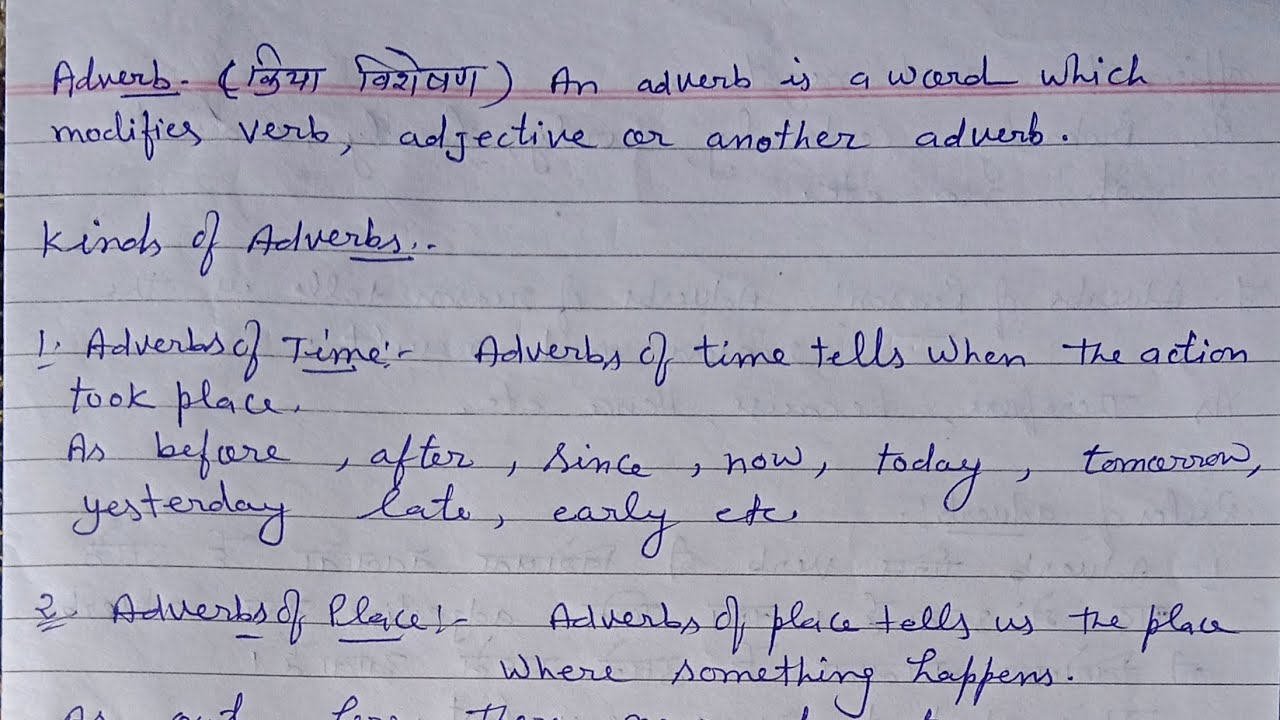 Adverb. (क्रिया विशेषण) An adverb is a word which
modifies verb, adjective or another adverb.
Kinds of Adverbs :-
1. Adverbs of Time :- Adverbs of time tells when the action
took place.
As before , after , since , now , today , tomorrow,
yesterday late, early etc
2. Adverbs of Place :- Adverbs of place tells us the place
where something happens.
As